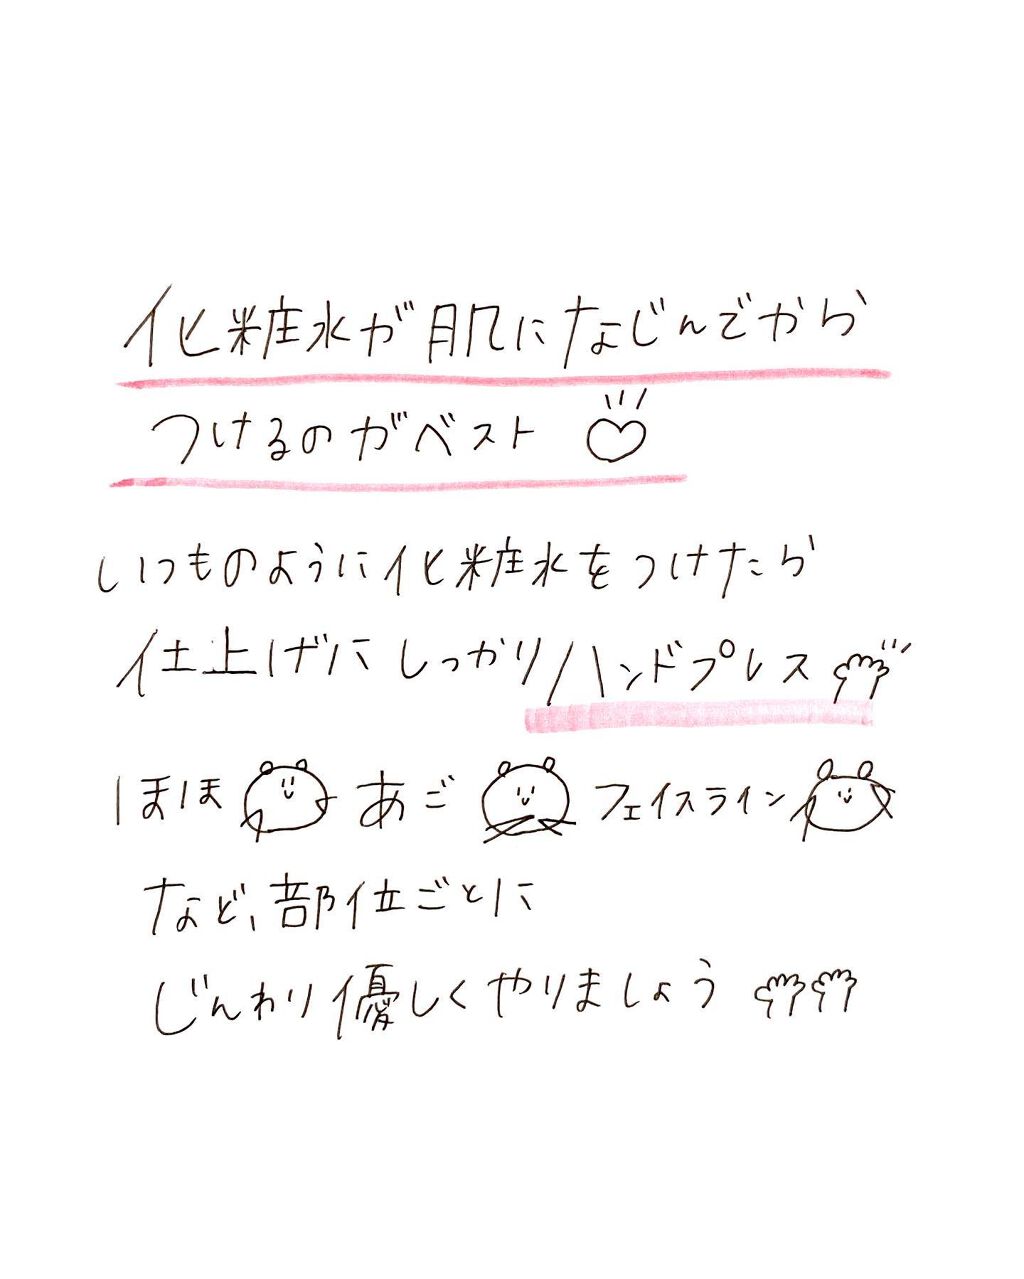 化粧水が肌になじんでから
つけるのがベスト
いつものように化粧水をつけたら
仕上げにしっかりハンドプレス
ほほ あご フェイスライン
など、部位ごとに
じんわり優しくやりましょう